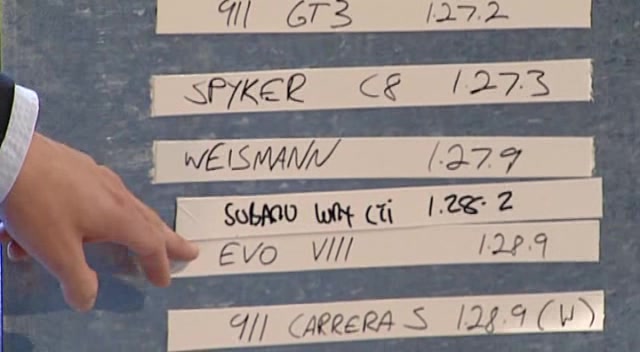 911 GT3 1.27.2
SPYKER C8 1.27.3
WEISMANN 1.27.9
SUBARU WRX STi 1.28.2
EVO VIII 1.28.9
911 CARRERA S 1.28.9 (W)